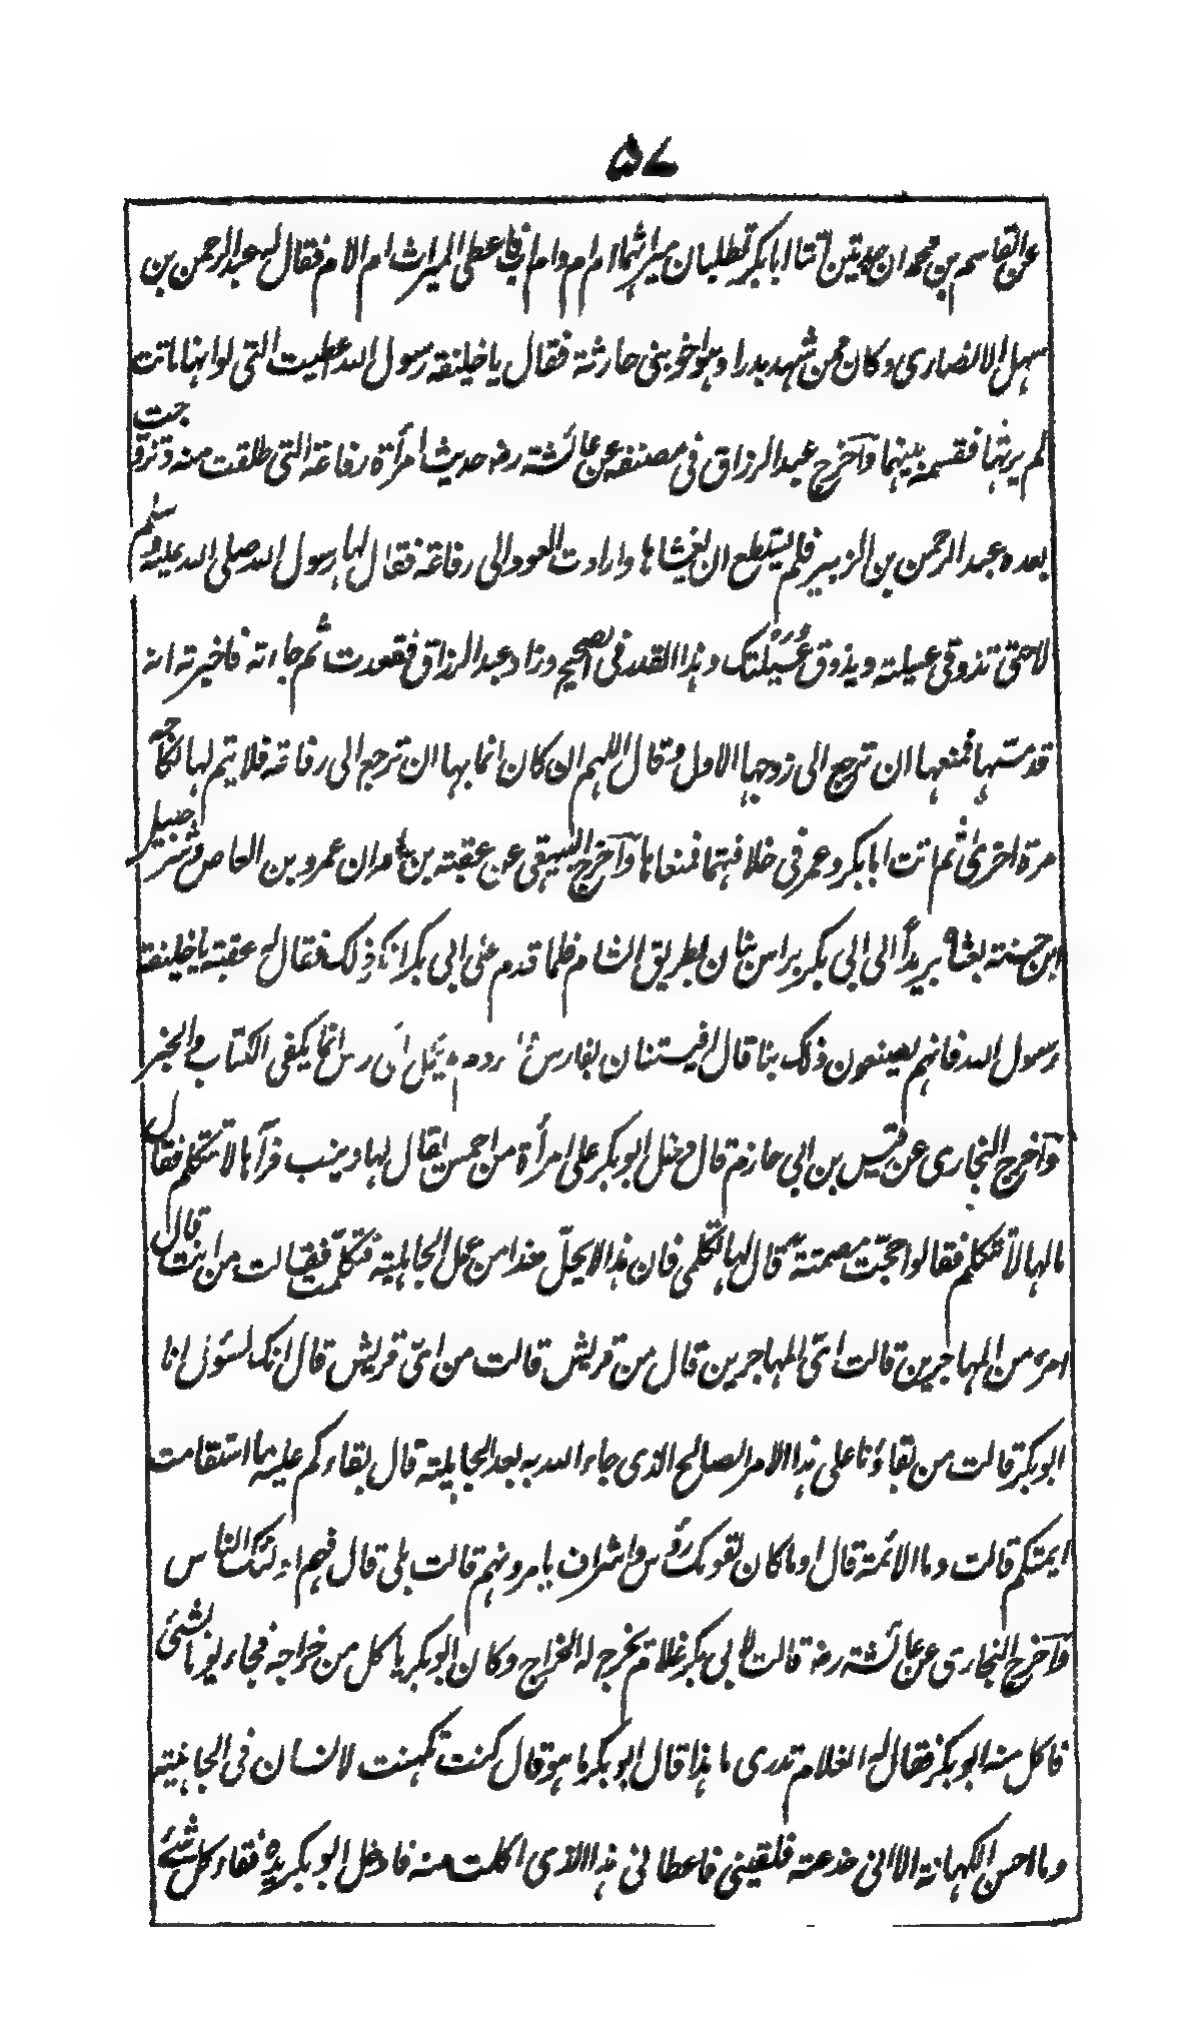 ۵۷
عن القاسم بن محمد ان جدتين اتتا ابا بكر تطلبان ميراثهما ام ام وام اب فاعطى الميراث ام الام فقال له عبد الرحمن بن
سهل الانصارى وكان ممن شهد بدرا وهو اخو بنى حارثة فقال يا خليفة رسول الله اعطيت التى لو انها ماتت
لم يرثها فقسمه بينهما وآخرج عبد الرزاق فى مصنفه عن عائشة رضـ حديث امرأة رفاعة التى طلقت منه وتزوجت
بعده عبد الرحمن بن الزبير فلم يستطع ان يغشاها وارادت العود الى رفاعة فقال لها رسول الله صلى الله عليه وسلم
لا حتى تذوقى عسيلته ويذوق عُسَيْلتك وهذا القدر فى الصحيح وزاد عبد الرزاق فقعدت ثم جاءته فاخبرته انه
قد مستها فمنعها ان ترجع الى زوجها الاول وقال اللهم ان كان انما بها ان ترجع الى رفاعة فلا يتم لها نكاحه
مرة اخرى ثم اتت ابا بكر وعمر فى خلافتهما فمنعاها وآخرج البيهقى عن عقبة بن عامر ان عمرو بن العاص وشرحبيل
ابن حسنة بعثاه بريداً الى ابى بكر براس بنان بطريق الشام فلما قدم على ابى بكر انكر ذلك فقال له عقبة يا خليفة
رسول الله فانهم يصنعون ذلك بنا قال افيستنان بفارس والروم لا يحمل الى رس انما يكفى الكتاب والخبر
وآخرج البخارى عن قيس بن ابى حازم قال دخل ابو بكر على امرأة من احمس يقال لها زينب فرآها لا تتكلم فقال
ما لها لا تتكلم فقالوا حجّت مصمتة قال لها تكلمى فان هذا لا يحلّ هذا من عمل الجاهلية فتكلّمت فقالت من انت قال
امرء من المهاجرين قالت اىّ المهاجرين قال من قريش قالت من اىّ قريش قال انك لسئول انا
ابو بكر قالت من بقاؤنا على هذا الامر الصالح الذى جاء الله به بعد الجاهلية قال بقاءكم عليه ما استقامت
ايمتكم قالت وما الائمة قال اوما كان لقومك رؤس واشراف يامرونهم قالت بلى قال فهم اولئك الناس
وآخرج البخارى عن عائشة رضـ قالت كان لابى بكر غلام يخرج له الخراج وكان ابو بكر ياكل من خراجه فجاء يوما بشئ
فاكل منه ابو بكر فقال له الغلام تدرى ما هذا قال ابو بكر ما هو قال كنت تكهنت لانسان فى الجاهلية
وما احسن الكهانة الا انى خدعته فلقينى فاعطانى هذا الذى اكلت منه فادخل ابو بكر يده فقاء كل شئ